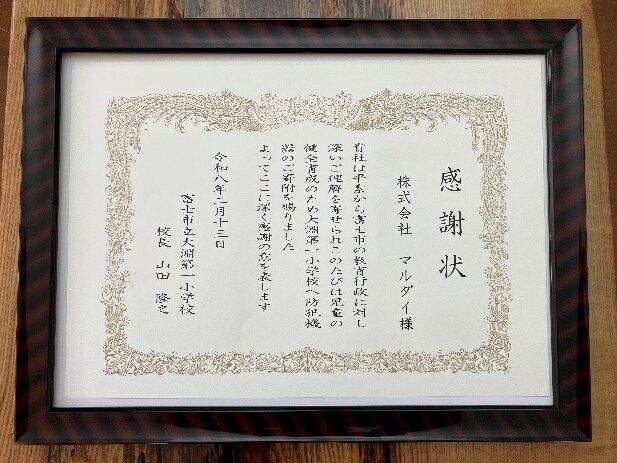 感謝状
株式会社 マルダイ様
貴社は平素から富士市の教育行政に対し
深いご理解を寄せられこのたびは児童の
健全育成のため大淵第一小学校へ防犯機
器のご寄附を賜りました
よってここに深く感謝の意を表します
令和八年二月十三日
富士市立大淵第一小学校
校長 山田 隆之